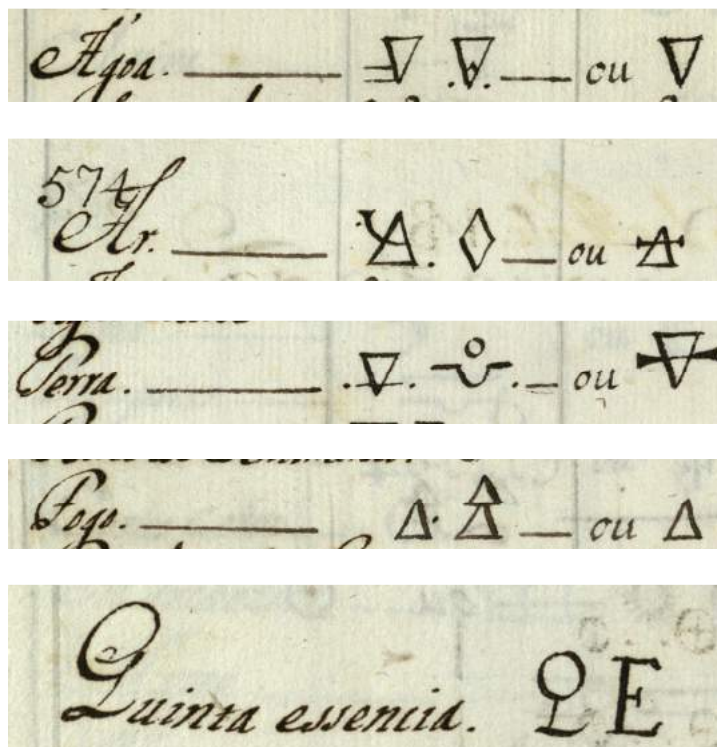 Agoa. 🜄 🜄 ou 🜄
574
Ar. 🜁 ◊ ou 🜁
Terra. 🜃 ou 🜃
Fogo. 🜂 🜂 ou 🜂
Quinta essencia. QE